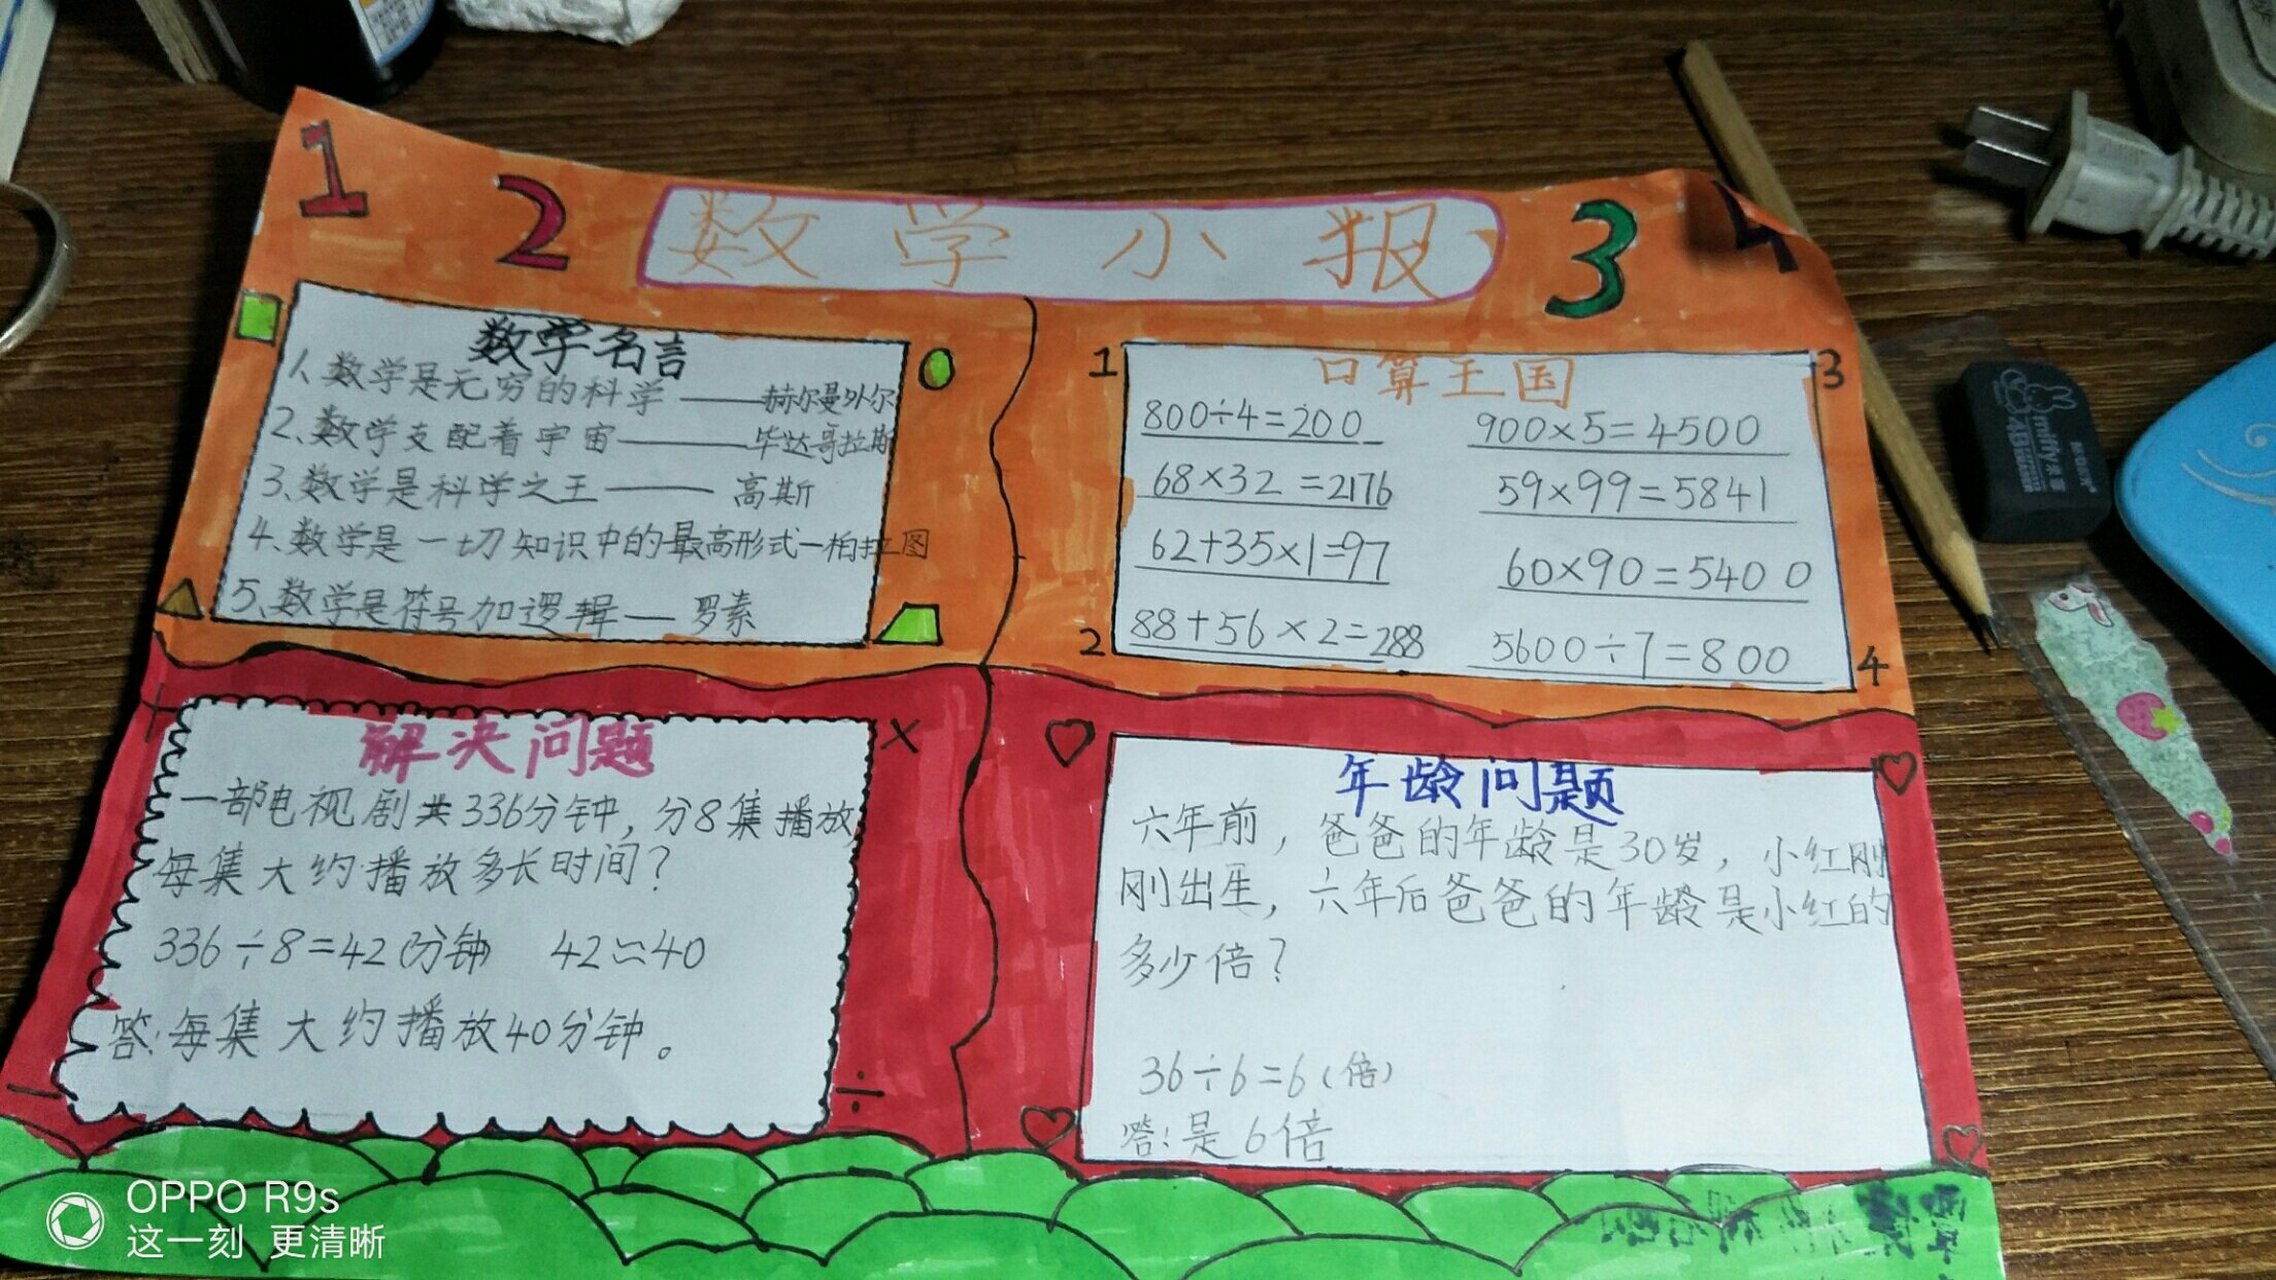 1 2 数学小报 3 4
数学名言
1、数学是无穷的科学——赫尔曼外尔
2、数学支配着宇宙——毕达哥拉斯
3、数学是科学之王——高斯
4、数学是一切知识中的最高形式—柏拉图
5、数学是符号加逻辑—罗素
1 3
口算王国
800÷4=200 900×5=4500
68×32=2176 59×99=5841
62+35×1=97 60×90=5400
88+56×2=288 5600÷7=800
2 4
+ ×
解决问题
一部电视剧共336分钟,分8集播放,
每集大约播放多长时间?
336÷8=42(分钟 42≈40
答:每集大约播放40分钟。
— ÷
年龄问题
六年前,爸爸的年龄是30岁,小红刚
刚出生,六年后爸爸的年龄是小红的
多少倍?
36÷6=6(倍)
答:是6倍
miffy
4B
OPPO R9s
这一刻 更清晰